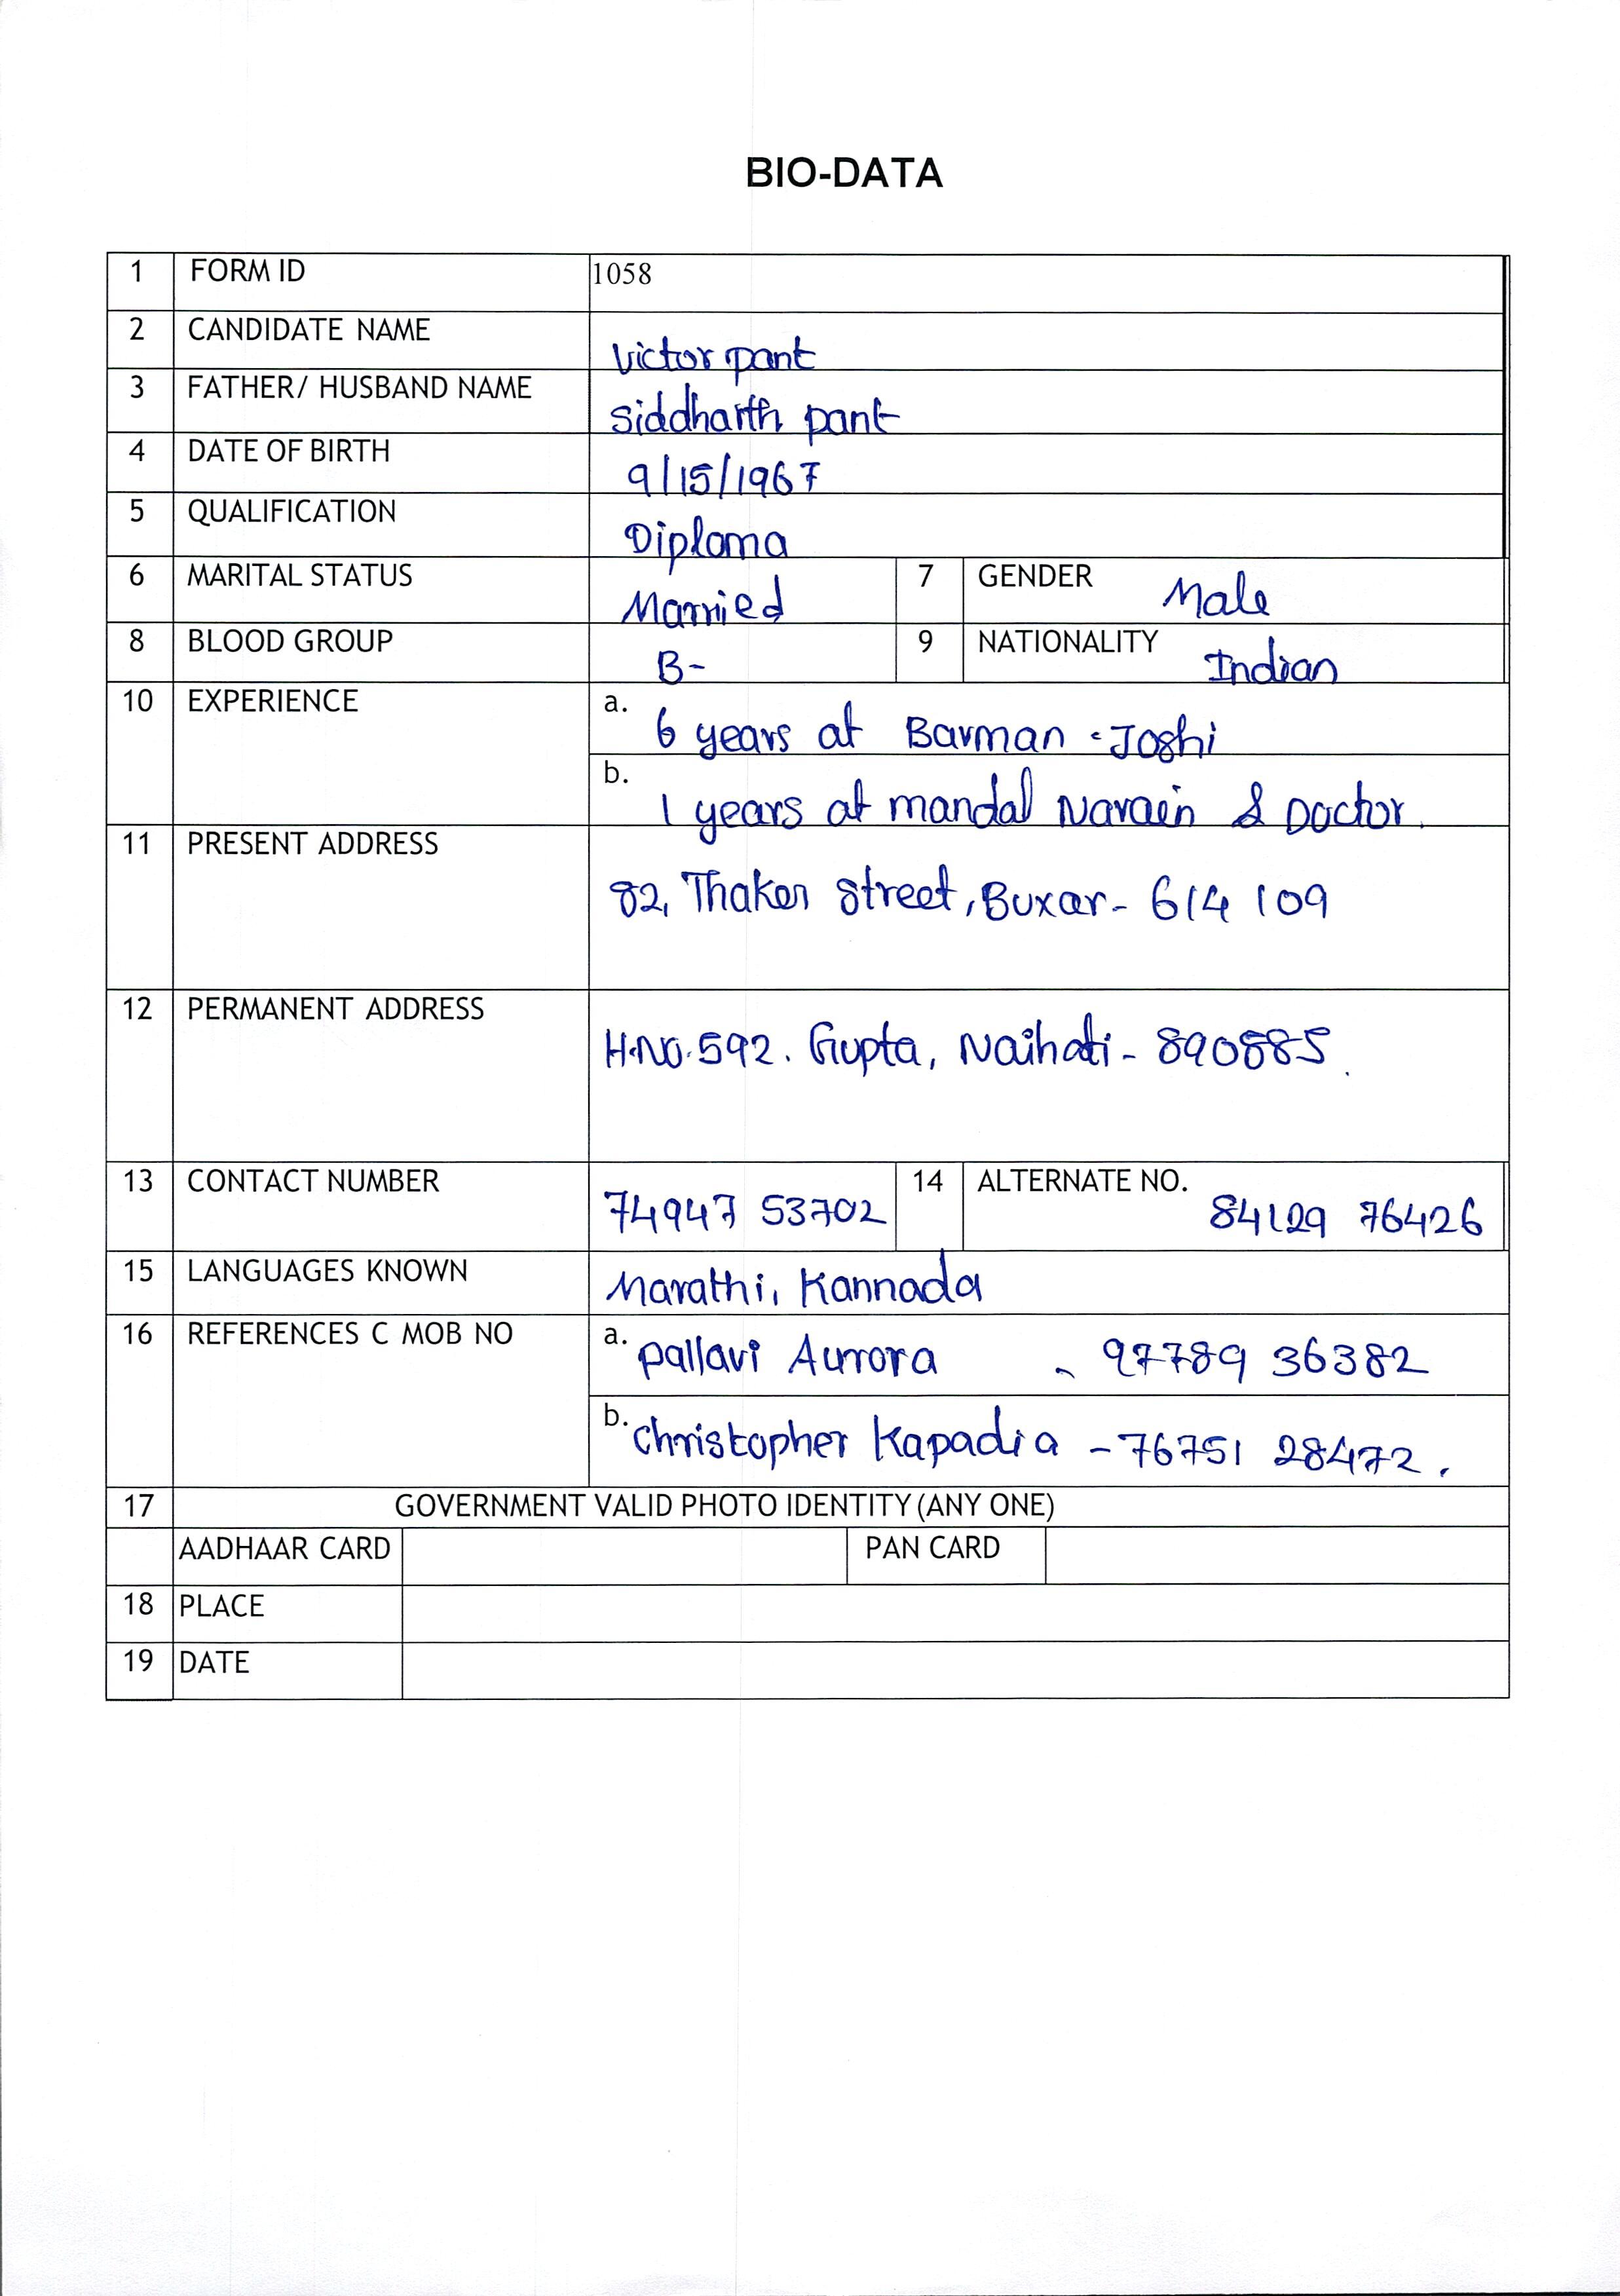 BIO-DATA
1 FORM ID 1058
2 CANDIDATE NAME Victor pant
3 FATHER/ HUSBAND NAME Siddharth pant
4 DATE OF BIRTH 9/15/1967
5 QUALIFICATION Diploma
6 MARITAL STATUS Married 7 GENDER Male
8 BLOOD GROUP B- 9 NATIONALITY Indian
10 EXPERIENCE a. 6 years at Barman - Joshi
b. 1 years at mandal Narain & Doctor.
11 PRESENT ADDRESS 82, Thaker Street, Buxar - 614 109
12 PERMANENT ADDRESS H.NO. 592. Gupta, Naihati - 890885.
13 CONTACT NUMBER 74947 53702 14 ALTERNATE NO. 84129 76426
15 LANGUAGES KNOWN Marathi, Kannada
16 REFERENCES C MOB NO a. Pallavi Aurora - 97789 36382
b. Christopher Kapadia - 76751 28472.
17 GOVERNMENT VALID PHOTO IDENTITY (ANY ONE)
AADHAAR CARD PAN CARD
18 PLACE
19 DATE